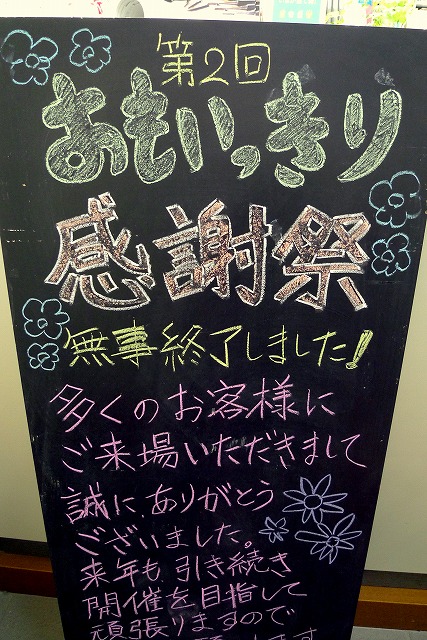 第2回
おもいっきり
感謝祭
無事終了しました!
多くのお客様に
ご来場いただきまして
誠にありがとう
ございました。
来年も引き続き
開催を目指して
頑張りますので